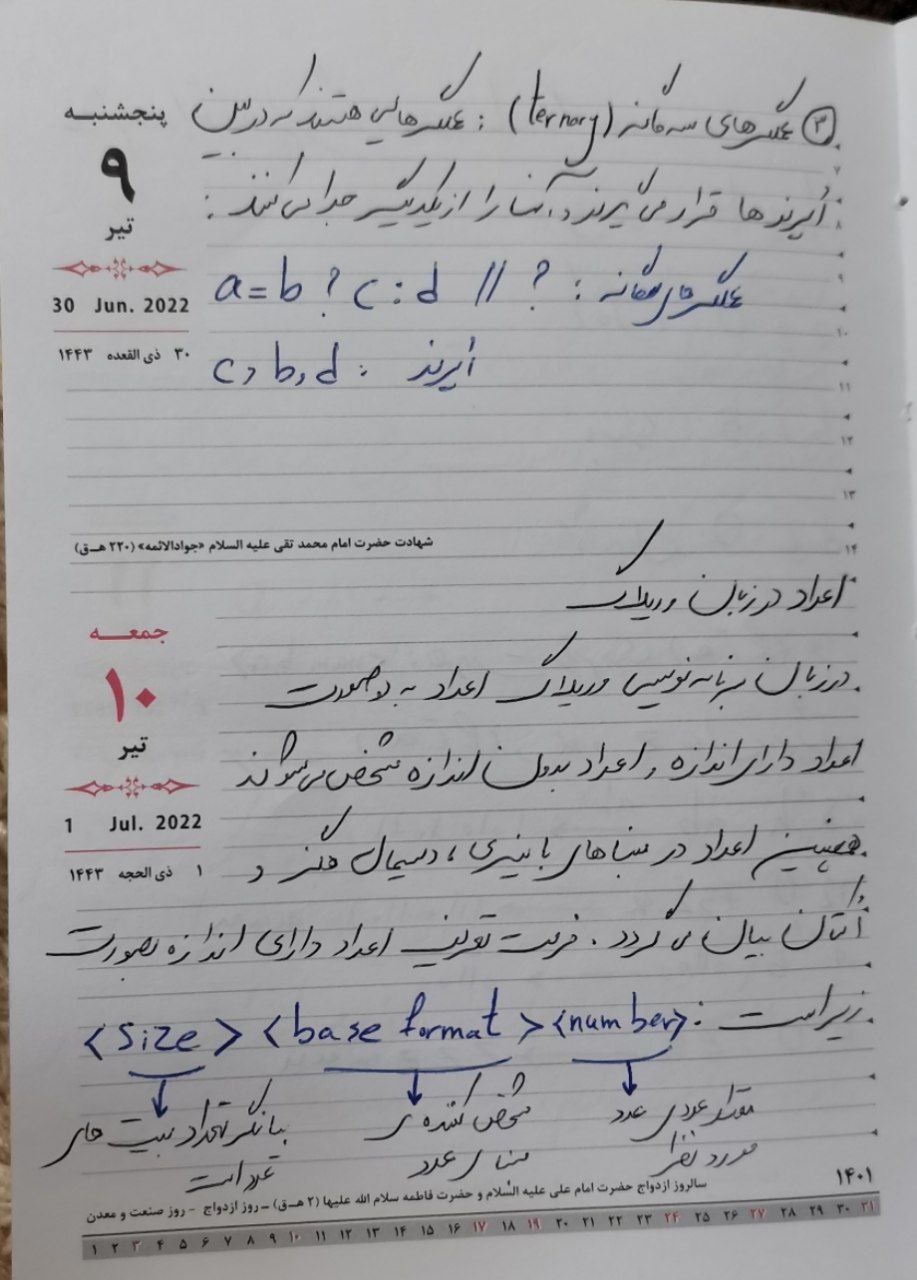 پنجشنبه
۹
تیر
30 Jun. 2022
۳۰ ذی القعده ۱۴۴۳
۳) عملگرهای سه گانه (ternary) : عملگرهایی هستند که در بین
اُپرندها قرار می گیرند و آنها را از یکدیگر جدا می کنند :
a = b ? c : d // ? : عملگرهای سه گانه
c, b, d : اُپرند
۷
۸
۹
۱۰
۱۱
۱۲
۱۳
۱۴
شهادت حضرت امام محمد تقی علیه السلام «جوادالائمه» (۲۲۰ هـ‌ق)
جمعه
۱۰
تیر
1 Jul. 2022
۱ ذی الحجه ۱۴۴۳
اعداد در زبان وریلاگ
در زبان برنامه نویسی وریلاگ اعداد به دو صورت
اعداد دارای اندازه و اعداد بدون اندازه مشخص می شوند
همچنین اعداد در مبناهای باینری ، دسیمال هگز و
اُکتال بیان می گردد . فرمت تعریف اعداد دارای اندازه بصورت
زیر است : <size> <base format> <number>
بیانگر تعداد بیت های
عدد است
مشخص کننده ی
مبنای عدد
مقدار عددی عدد
مورد نظر
۱۴۰۱
سالروز ازدواج حضرت امام علی علیه السلام و حضرت فاطمه سلام الله علیها (۲ هـ‌ق) ـ روز ازدواج - روز صنعت و معدن
۱ ۲ ۳ ۴ ۵ ۶ ۷ ۸ ۹ ۱۰ ۱۱ ۱۲ ۱۳ ۱۴ ۱۵ ۱۶ ۱۷ ۱۸ ۱۹ ۲۰ ۲۱ ۲۲ ۲۳ ۲۴ ۲۵ ۲۶ ۲۷ ۲۸ ۲۹ ۳۰ ۳۱